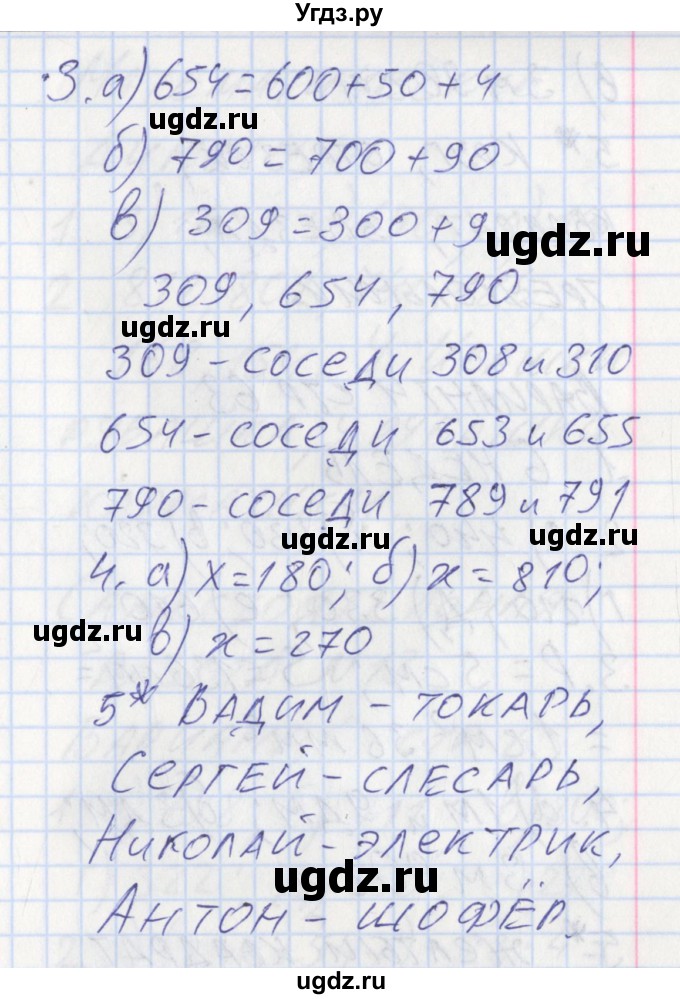 Угдз.ру
3. а) 654 = 600 + 50 + 4
ugdz.ru
б) 790 = 700 + 90
в) 309 = 300 + 9
ugdz.ru
309, 654, 790
ugdz.ru
309 - соседи 308 и 310
654 - соседи 653 и 655
790 - соседи 789 и 791
ugdz.ru ugdz.ru
4. а) x = 180; б) x = 810;
ugdz.ru
в) x = 270
5* Вадим - токарь,
Сергей - слесарь,
Николай - электрик,
ugdz.ru
Антон - шофёр.
ugdz.ru